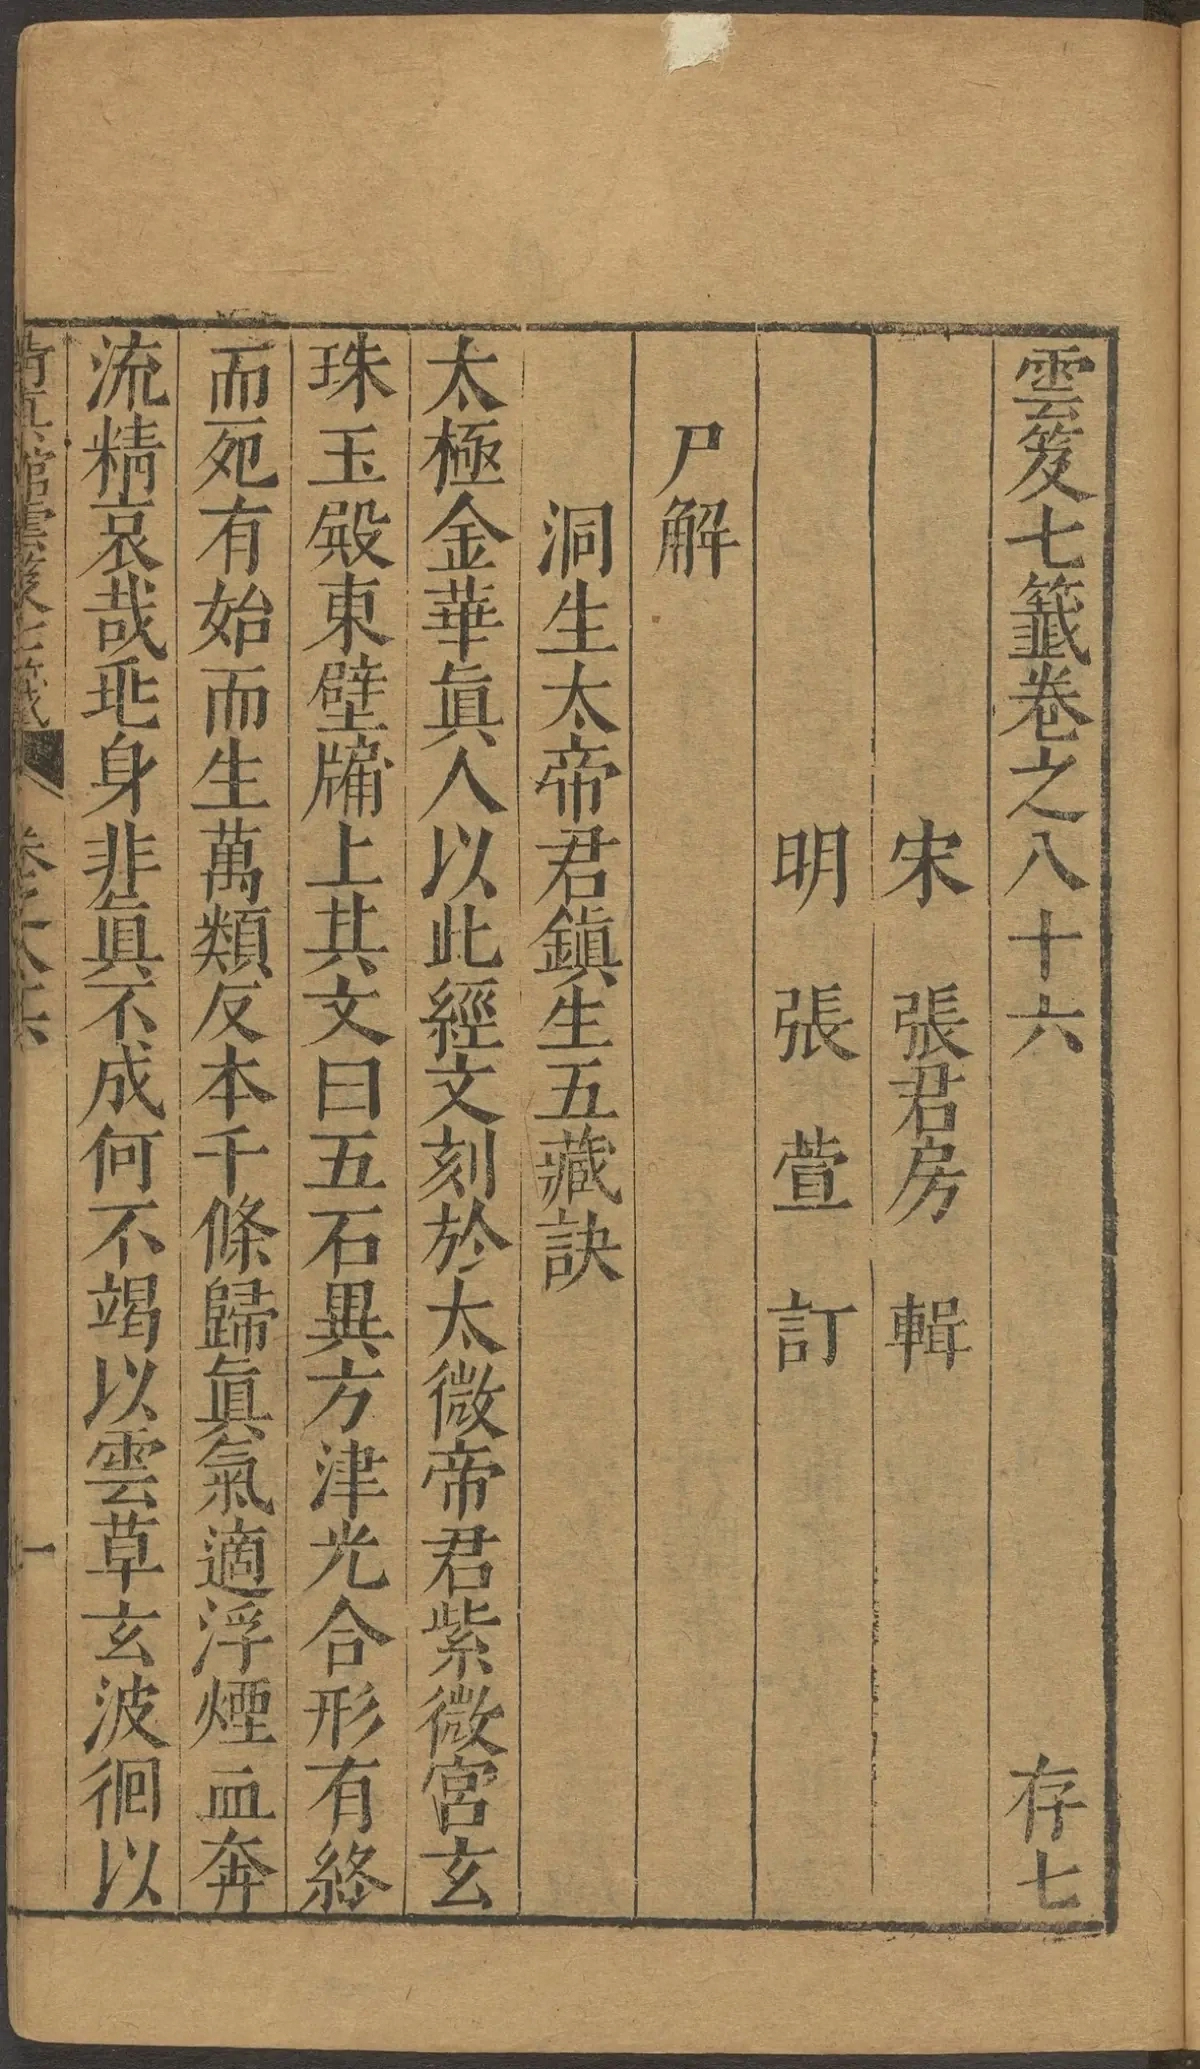 雲笈七籤卷之八十六 存七
宋 張君房 輯
明 張萱 訂
尸解
洞生太帝君鎮生五藏訣
太極金華眞人以此經文刻於太微帝君紫微宮玄
珠玉殿東壁牖上其文曰五石異方津光合形有終
而死有始而生萬類反本千條歸眞氣適浮煙血奔
流精哀哉兆身非眞不成何不竭以雲草玄波徊以
清眞館雲笈七籤 卷之八十六 一